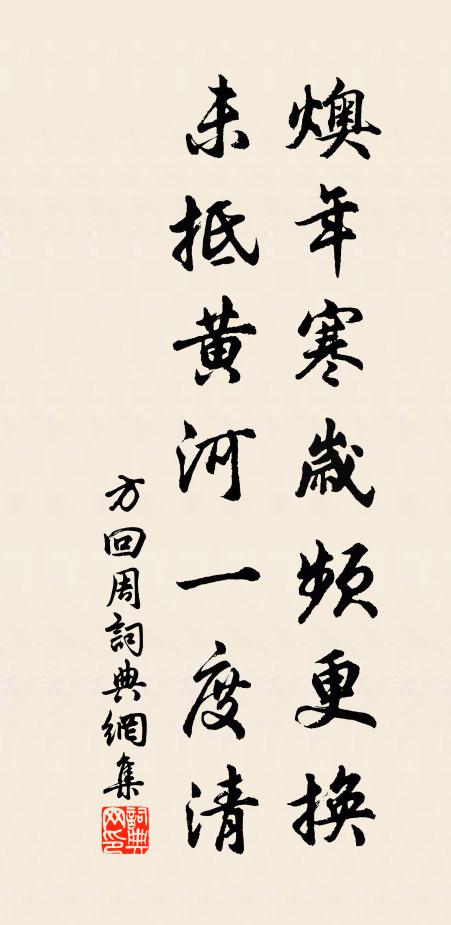 燠年寒歲頻更換
未抵黄河一度清
方回周詞典網集
詞典網印